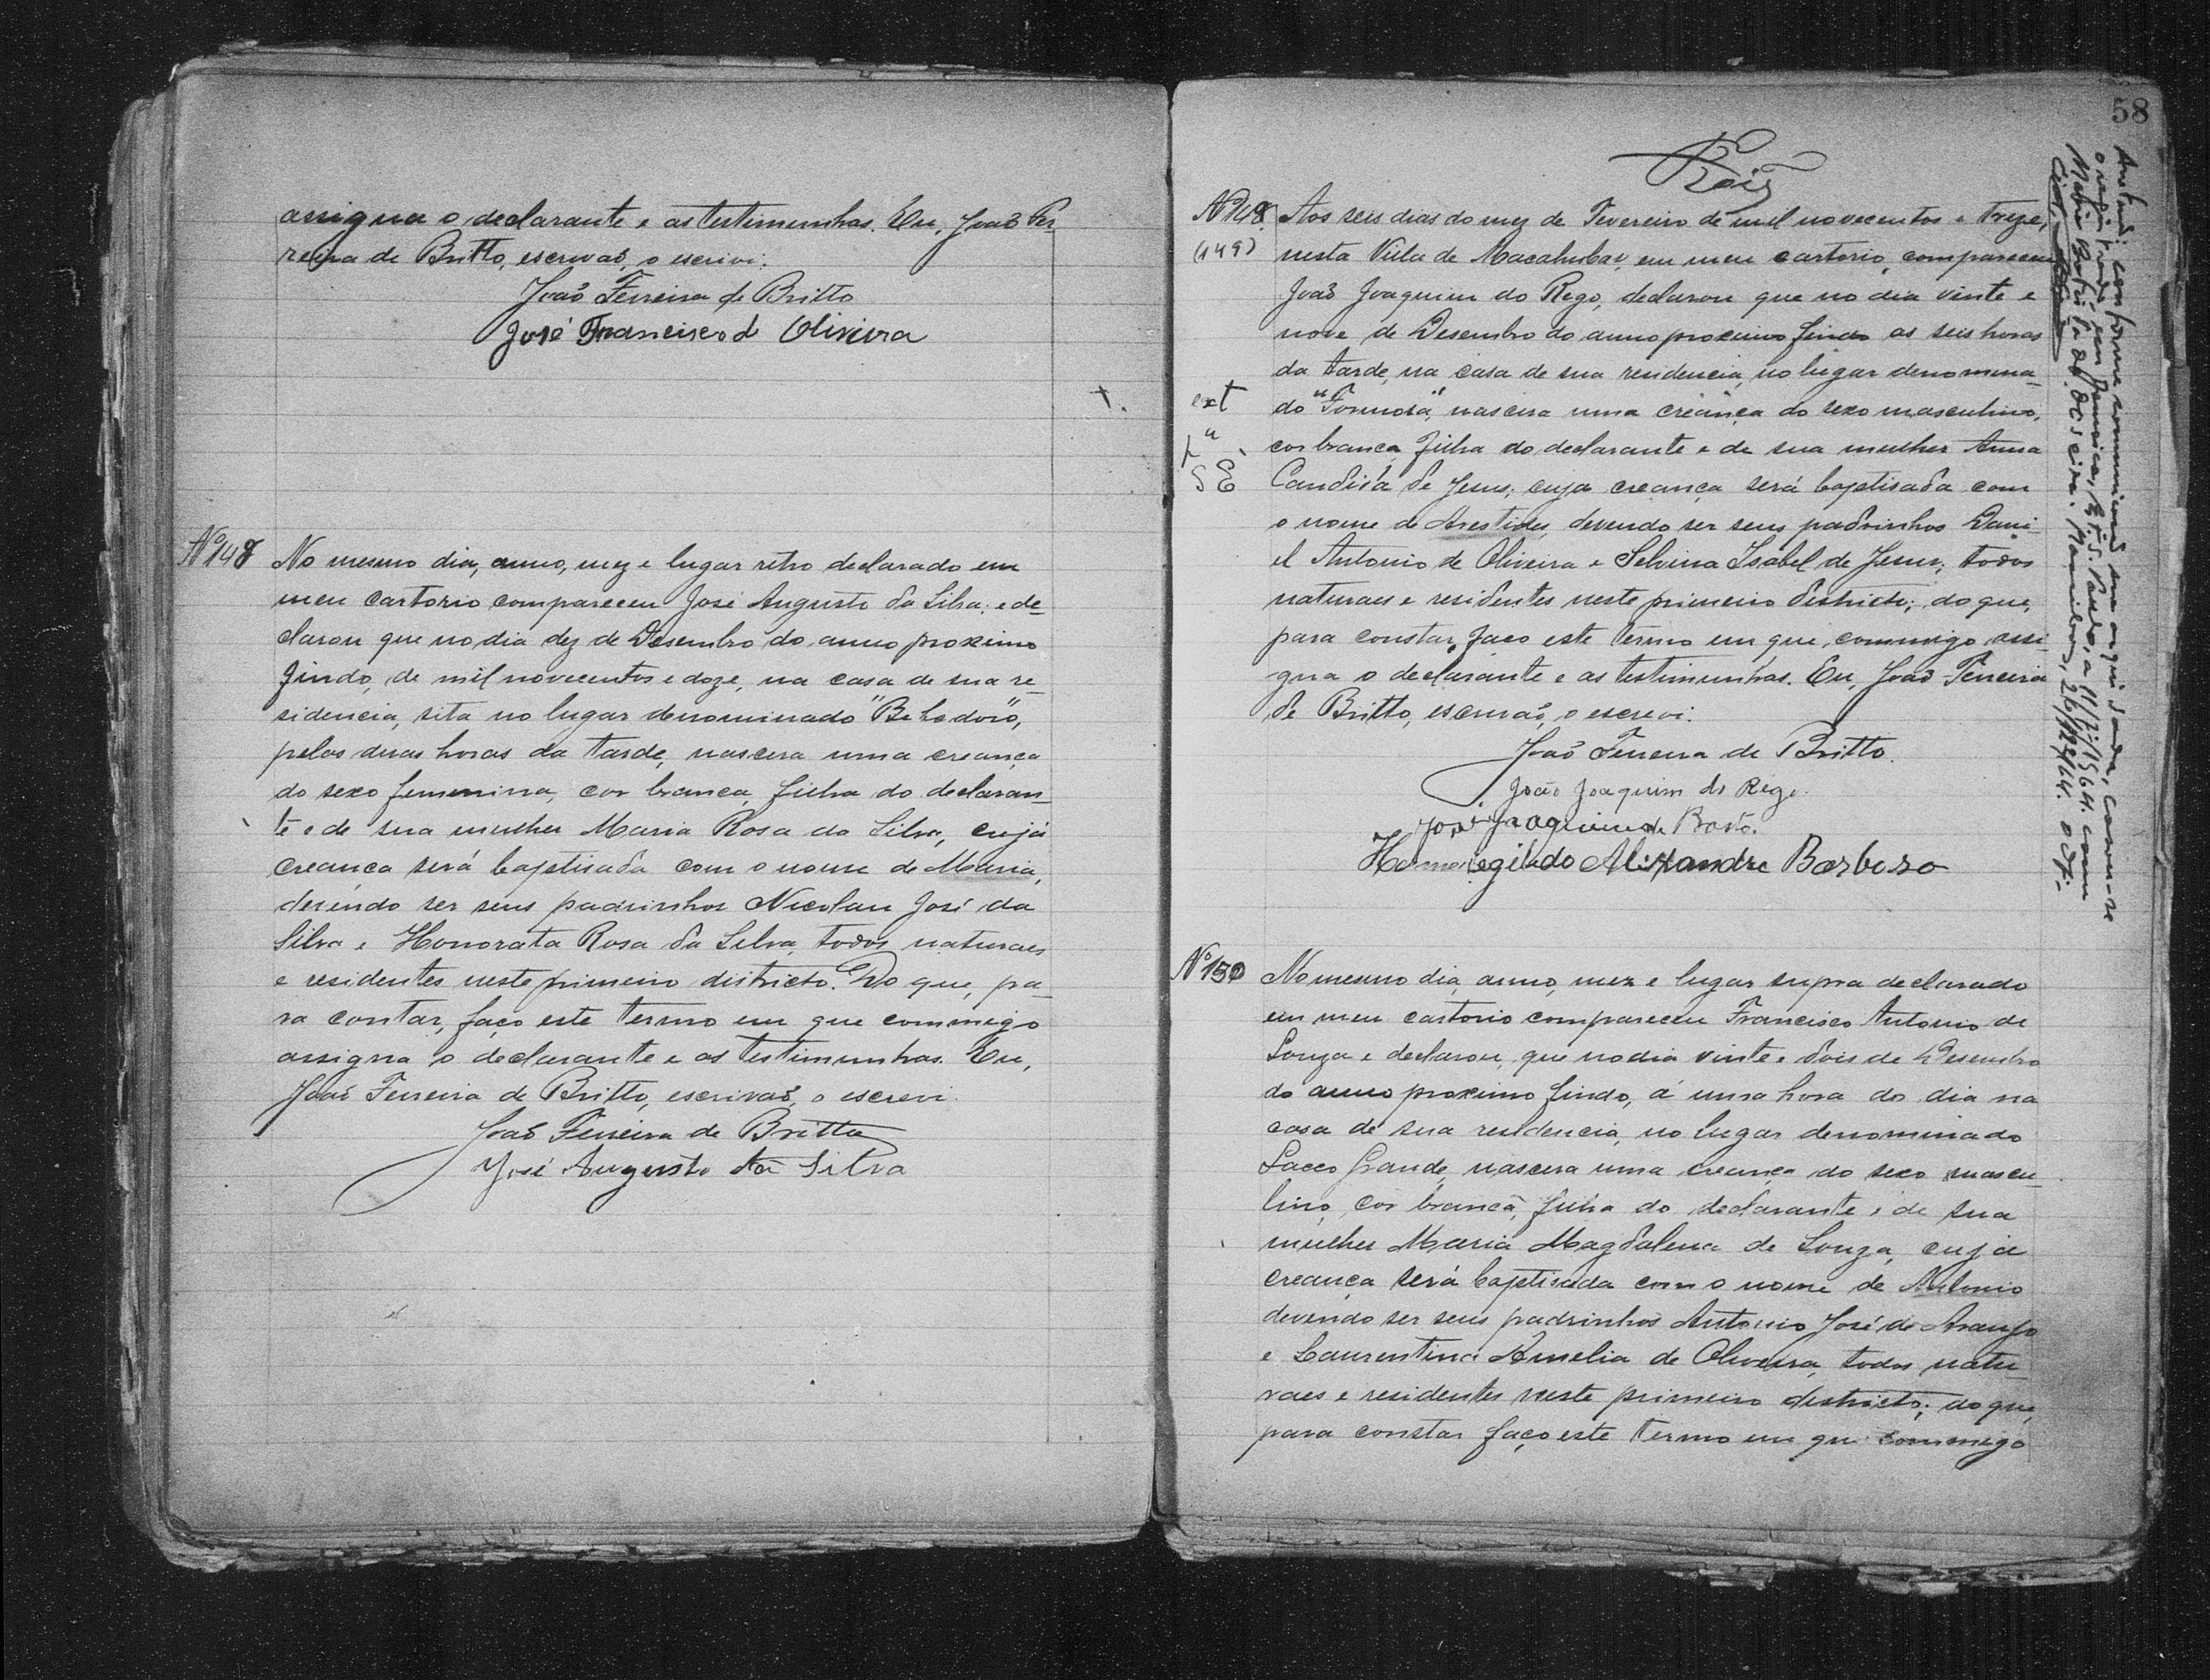 assigna o declarante e as testimunhas. Eu, João Fer-
reira de Britto, escrivaõ, o escrivi.
João Ferreira de Britto
José Francisco de Oliveira
Nº 148 No mesmo dia, anno, mez e lugar retro declarado em
meu cartorio compareceu José Augusto da Silva, e de-
clarou que no dia dez de Desembro do anno proximo
findo, de mil novecentos e doze, na casa de sua re-
sidencia, sita no lugar denominado
pelas duas horas da tarde, nascera uma creança
do sexo femenina, cor branca, filha do declaran-
te e de sua mulher Maria Rosa da Silva, cuja
creança será baptisada com o nome de Maria,
devendo ser seus padrinhos Nicolau José da
Silva e Honorata Rosa da Silva, todos naturaes
e residentes neste primeiro districto. Do que, pa-
ra contar, faço este termo em que commigo
assigna o declarante e as testimunhas. Eu,
João Ferreira de Britto, escrivaõ, o escrevi.
João Ferreira de Britto
José Augusto da Silva
58
Nº 148. Aos seis dias do mez de Fevereiro de mil novecentos e treze,
(149) nesta Villa de Macahubas, em meu cartorio, compareceu
João Joaquim do Rego, declarou que no dia vinte e
nove de Desembro do anno proximo findo as seis horas
da tarde, na casa de sua residencia, no lugar denomina-
do "Formosa", nascera uma creança do sexo masculino,
cor branca, filha do declarante e de sua mulher Anna
Candida de Jesus, cuja creança será baptisada com
o nome de Arestides, devendo ser seus padrinhos Dani-
el Antonio de Oliveira e Selvina Isabel de Jesus, todos
naturaes e residentes neste primeiro districto; do que,
para constar, faço este termo em que, commigo assi-
gna o declarante e as testimunhas. Eu, João Ferreira
de Britto, escrivaõ, o escrevi.
João Ferreira de Britto.
João Joaquim do Rego.
José Joaquim de
Hermenegildo Alixandre Barboso
Nº 150 No mesmo dia, anno, mez e lugar supra declarado
em meu cartorio compareceu Francisco Antonio de
Souza e declarou, que no dia vinte e dois de Desembro
do anno proximo findo, á uma hora do dia na
casa de sua residencia, no lugar denominado
Sacco Grande, nascera uma creança do sexo mascu-
lino, cor branca, filha do declarante e de sua
mulher Maria Magdalena de Souza, cuja
creança será baptisada com o nome de Antonio
devendo ser seus padrinhos Antonio José de Araujo
e Laurentina Amelia de Oliveira, todos natu-
raes e residentes neste primeiro districto; do que,
para constar faço este termo em que commigo